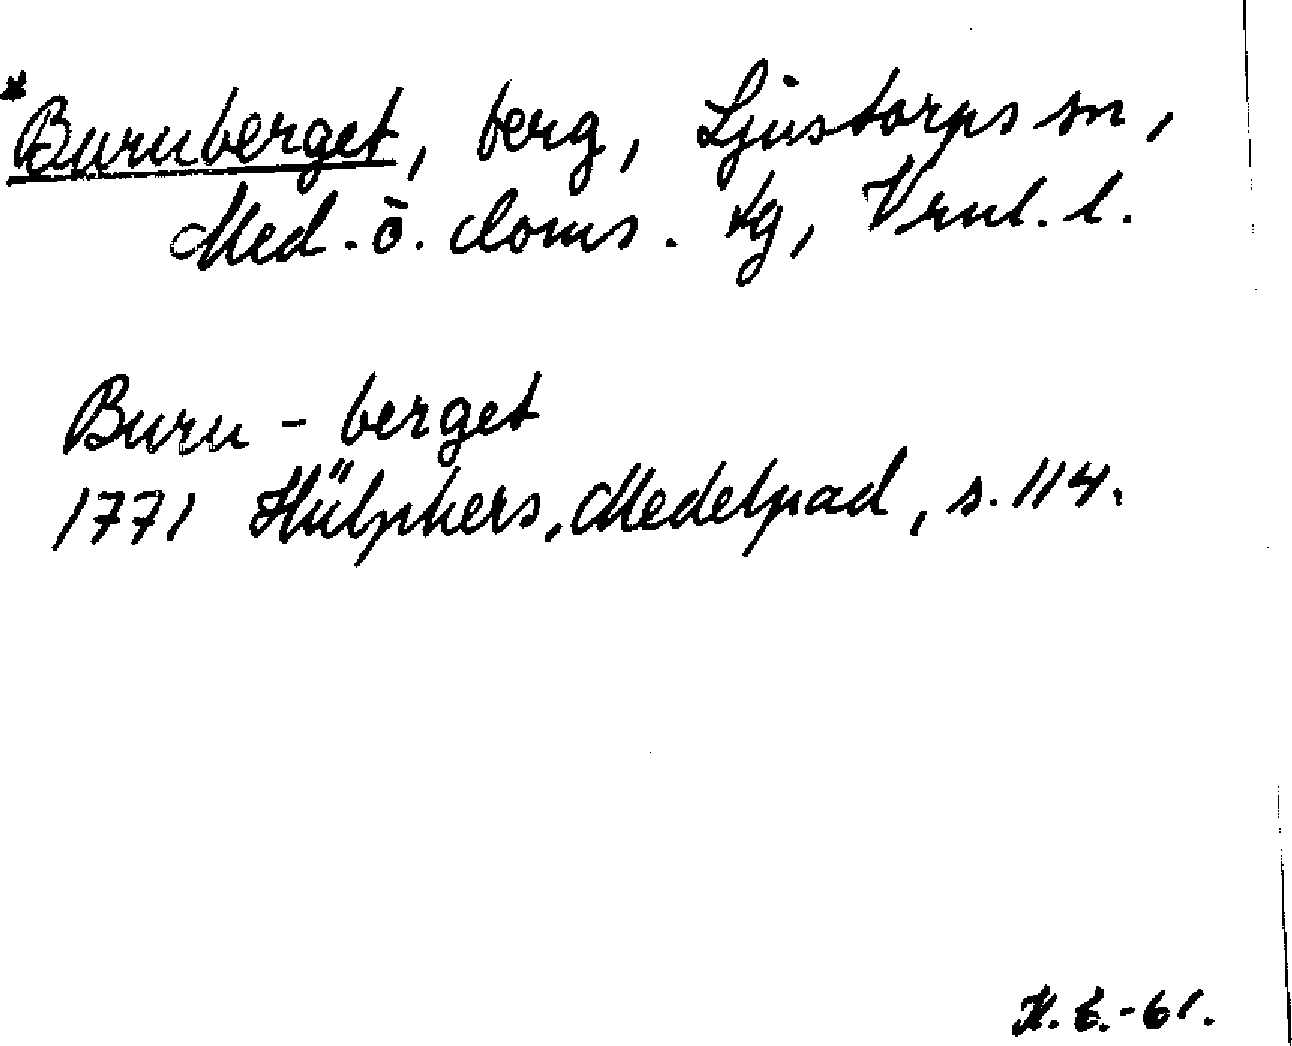 *Buruberget, berg, Ljustorps sn,
Med. ö. doms. tg, Vrnl. l.
Buru - berget
1771 Hülphers, Medelpad, s. 114.
H.E.-61.